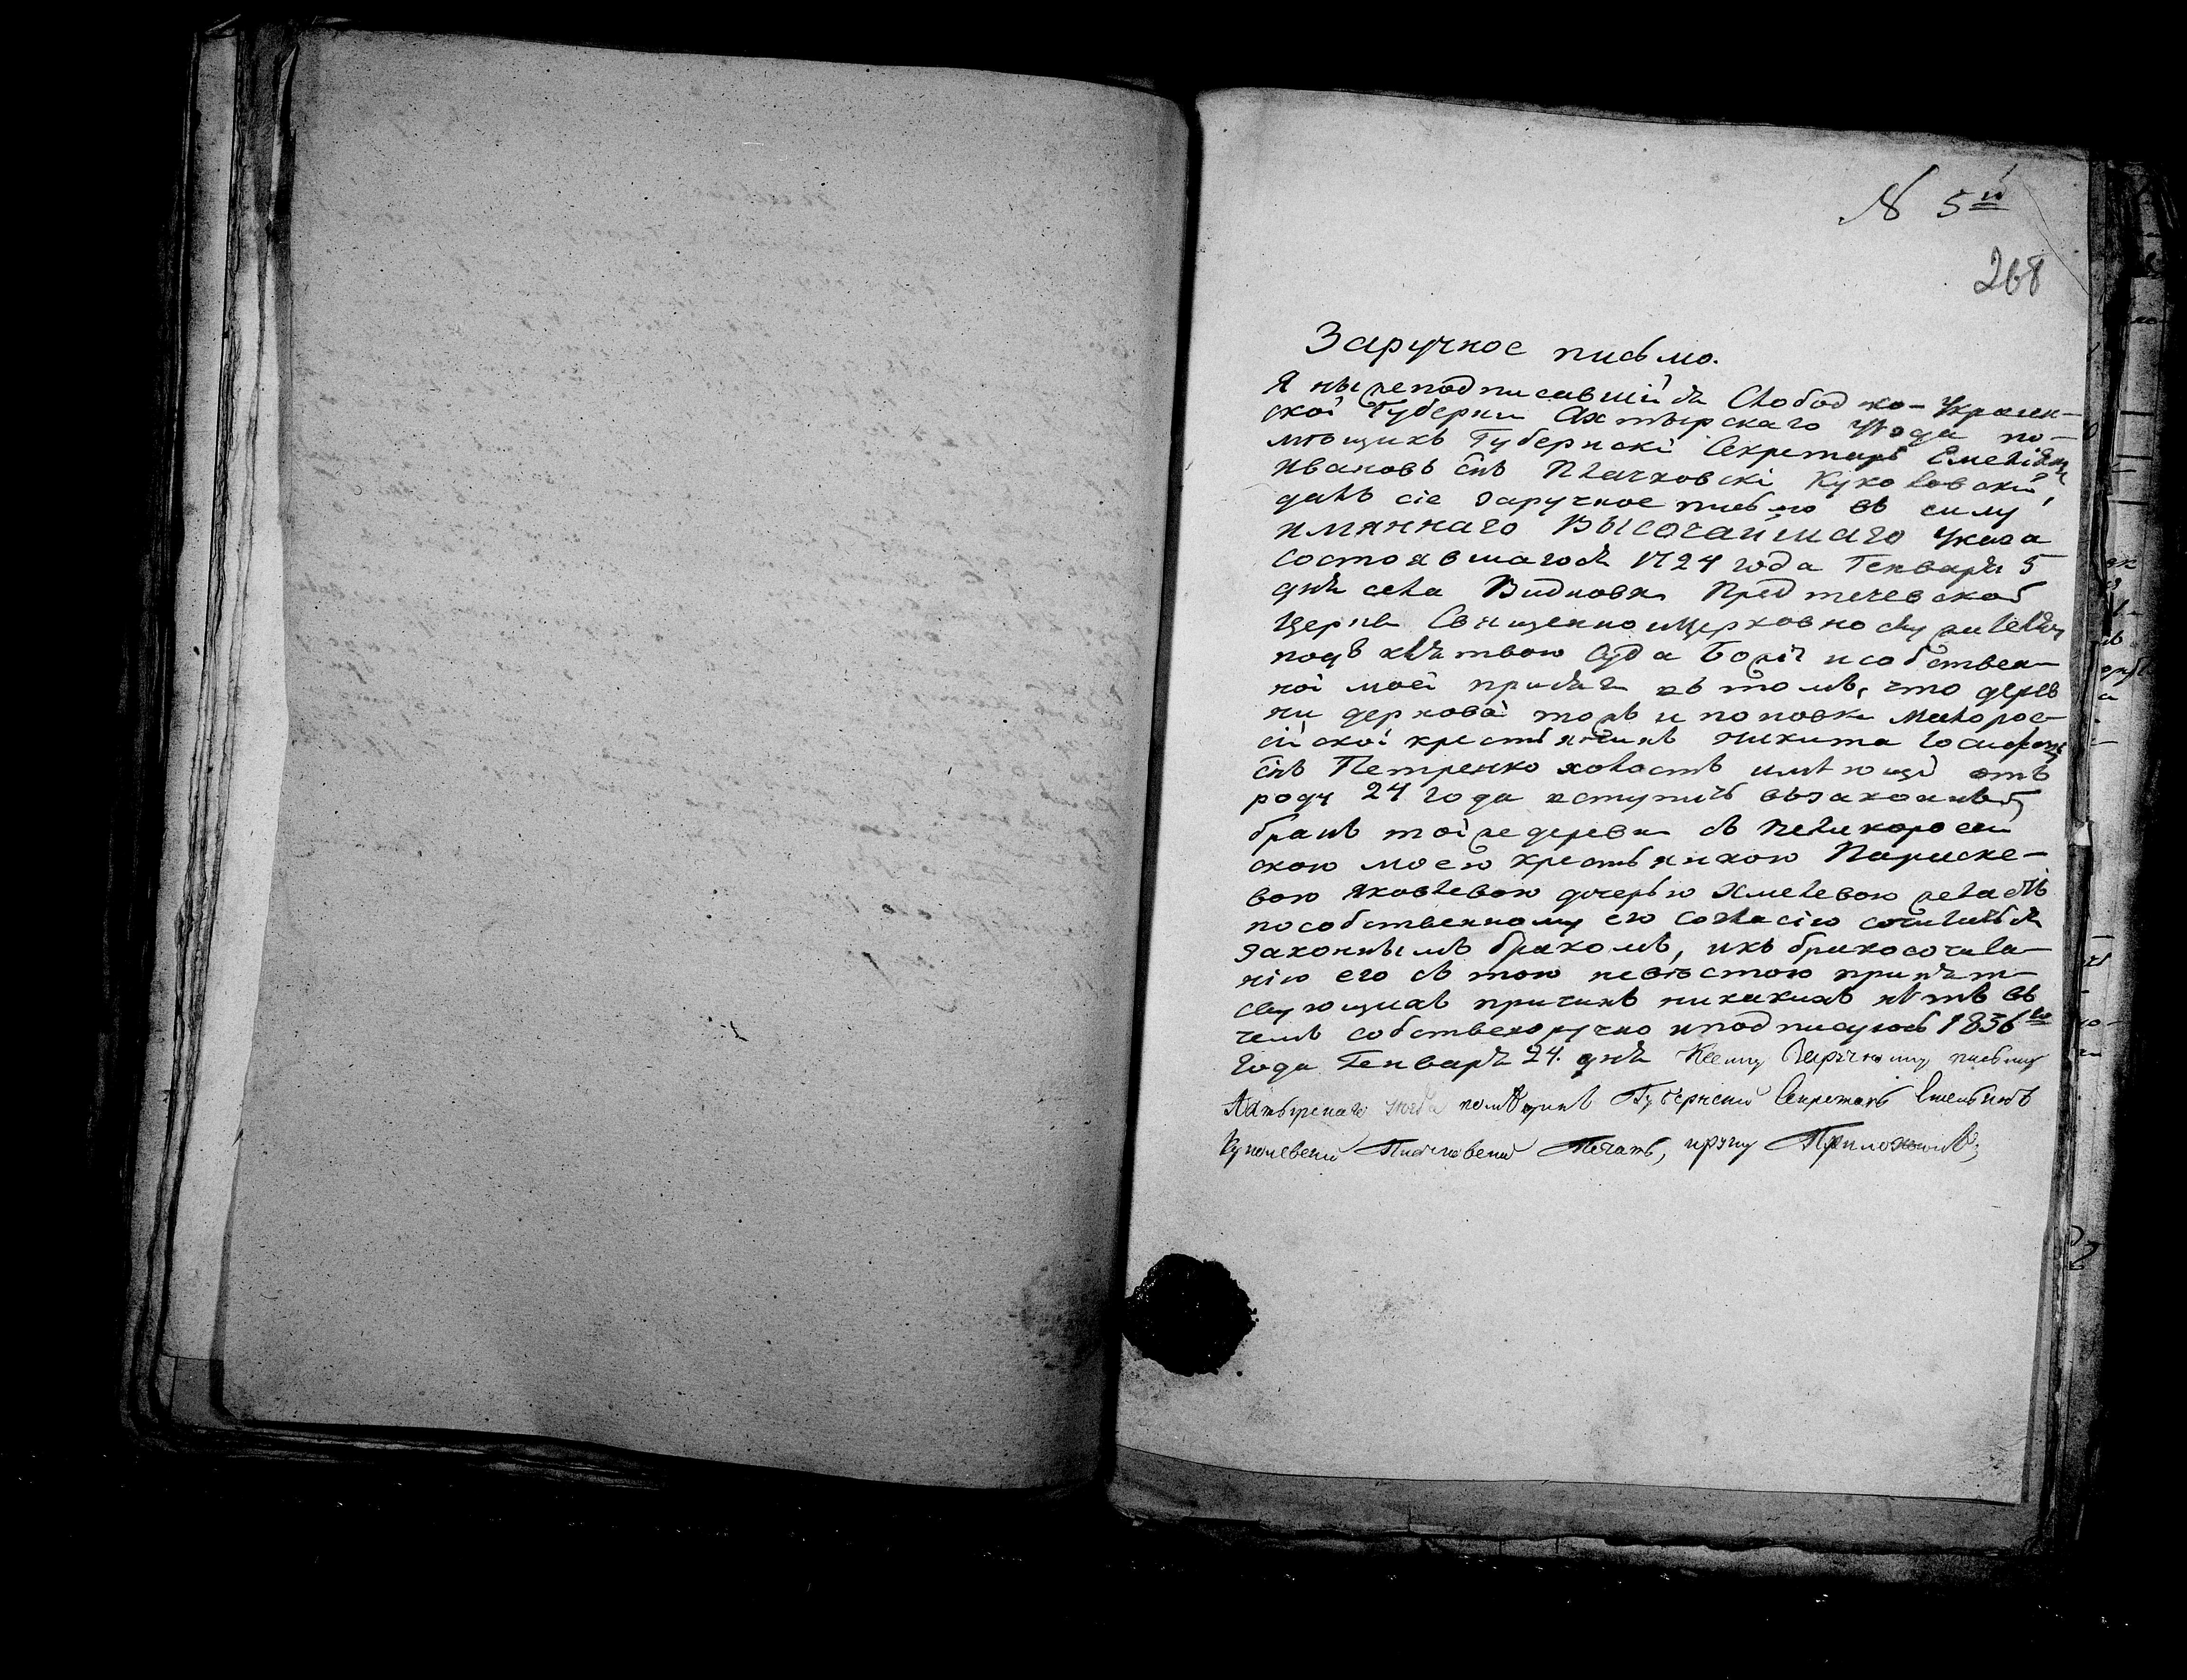 № 5й
268
Заручное письмо.
Я нижеподписавшійся Слободско-Украин-
ской Губерніи Ахтырскаго уѣзда по-
мѣщикъ Губернскі Секретарь Емеліянъ
Ивановъ снъ Плачковскі Куколовскій,
далъ сіе заручное письмо въ силу
имяннаго Высочайшаго указа
состоявшагося 1724 года Генваря 5
дня села Видновки Предтечевской
Церкви Священноицерковнослужителям
подъ клятвою Суда Божія исобствен-
ной моей присяги въ томъ, что дерев
ни дерновой тожъ и поповки Малорос-
сійской крестьянинъ Никита Іосифовъ
снъ Петренко холостъ имѣющій отъ
роду 24 года вступить взаконный
бракъ той же деревни съ великоросій
скою моею крестьянкою Параске-
вою Яковлевою дочерью Хмелевою желаетъ
пособственному ею согласію сочитаться
законнымъ бракомъ, икъ бракосочита-
нію его съ тою невѣстою препят-
ствующихъ причинъ никакихъ нѣтъ въ
чемъ собственоручно иподписуюсь 1836го
года Генваря 24. дня Ксему Заручному письму
Ахтырскаго уѣзда помѣщикъ Губернский Секретарь Емельянъ
Печать, ируку Приложилъ;